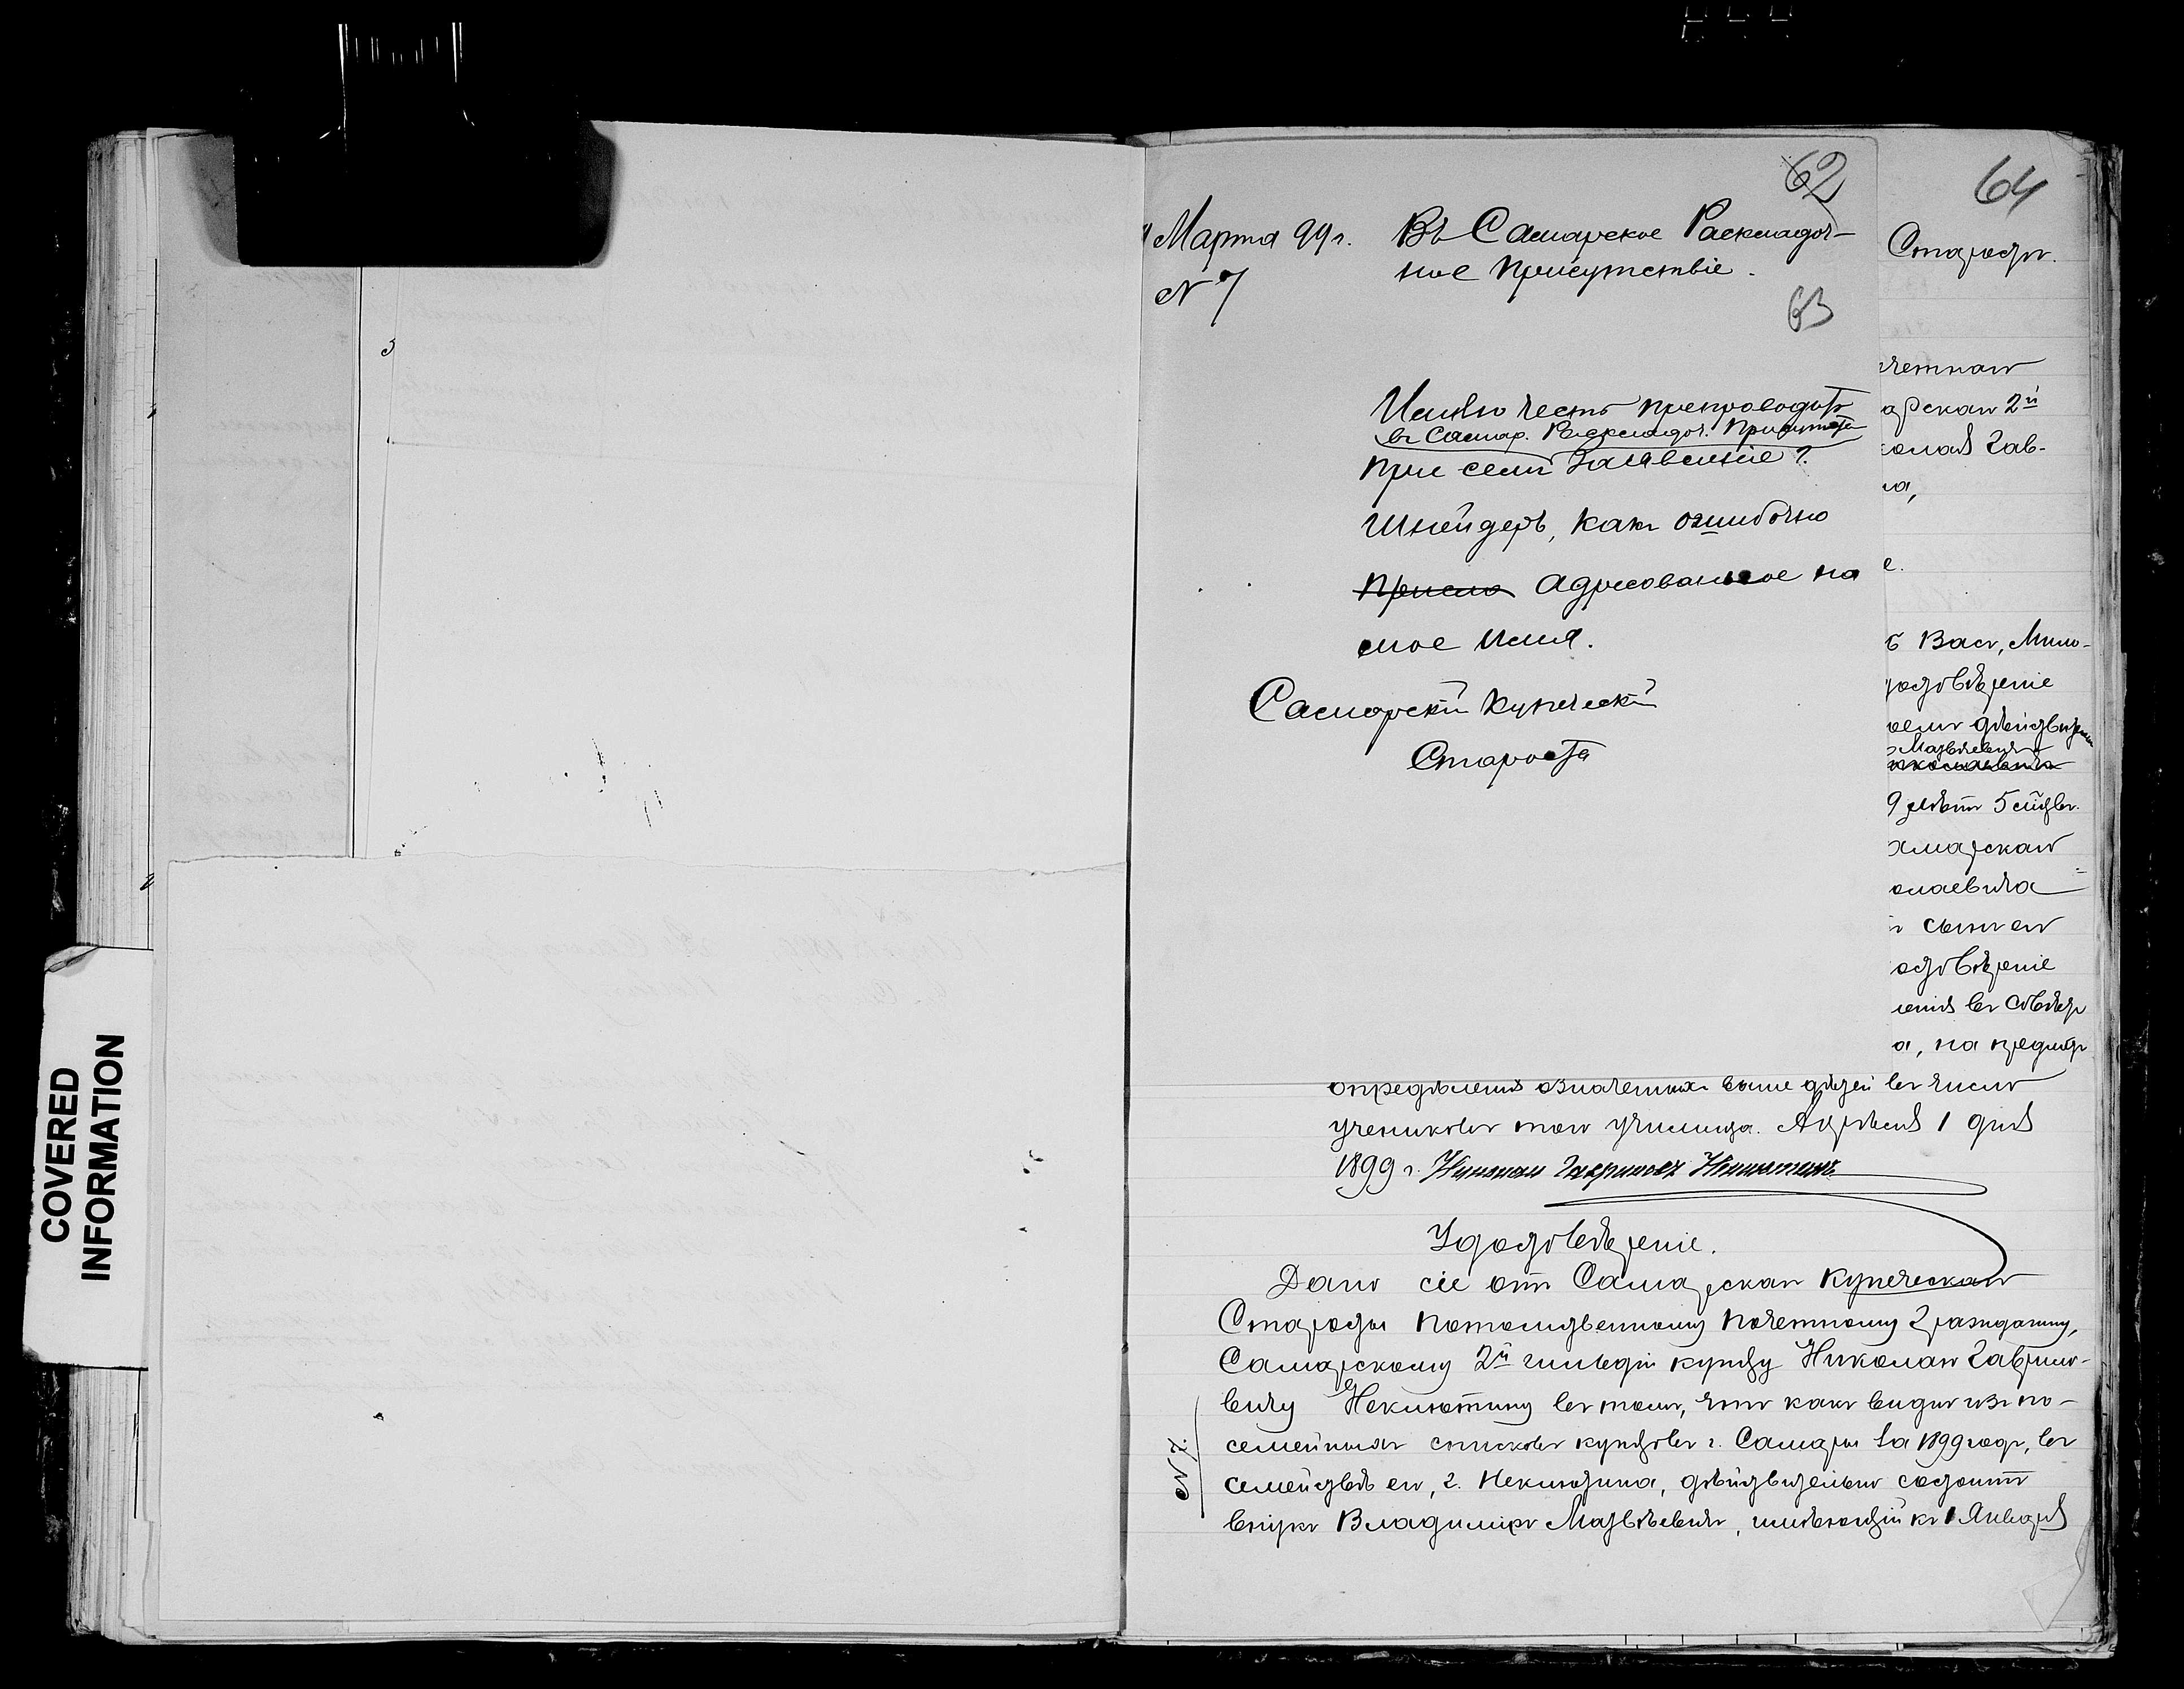 COVERED
INFORMATION
62
63
Марта 99 г. Въ Самарское Раскладоч-
№ 7 ное Присутствіе.
Имѣю честь препроводить
въ Самар. Раскладоч. Присутств
при семъ заявленіе г.
Шнейдеръ, какъ ошибочно
адресованное на
мое имя.
Самарскій Купеческій
Староста
64
Старостѣ.
четнаго
арскаго 2й
колая Гав-
на,
е.
ъ Васъ, Мило-
достовѣреніе
моемъ дѣйстви
Матвѣевичъ
9 лѣтъ 5 мѣсяц.
амарскаго
олаевича
и сынъ его
остовѣреніе
ленія въ
а, на предм
опредѣленія означенныхъ выше дѣтей въ число
учениковъ того училища. Апрѣля 1 дня
1899 г. Николай Гавриловъ Неклютинъ
Удостовѣреніе.
Дано сіе отъ Самарскаго Купеческаго
Старосты Потомственному Почетному Гражданину,
Самарскому 2й гильдіи купцу Николаю Гаврило-
вичу Неклютину въ томъ, что какъ видно изъ по-
семейныхъ списковъ купцовъ г. Самары за 1899 годъ, въ
семействѣ его, г. Неклютина, дѣйствительно состоитъ
внукъ Владиміръ Матвѣевичъ, имѣющій къ 1 Января
№ 7.